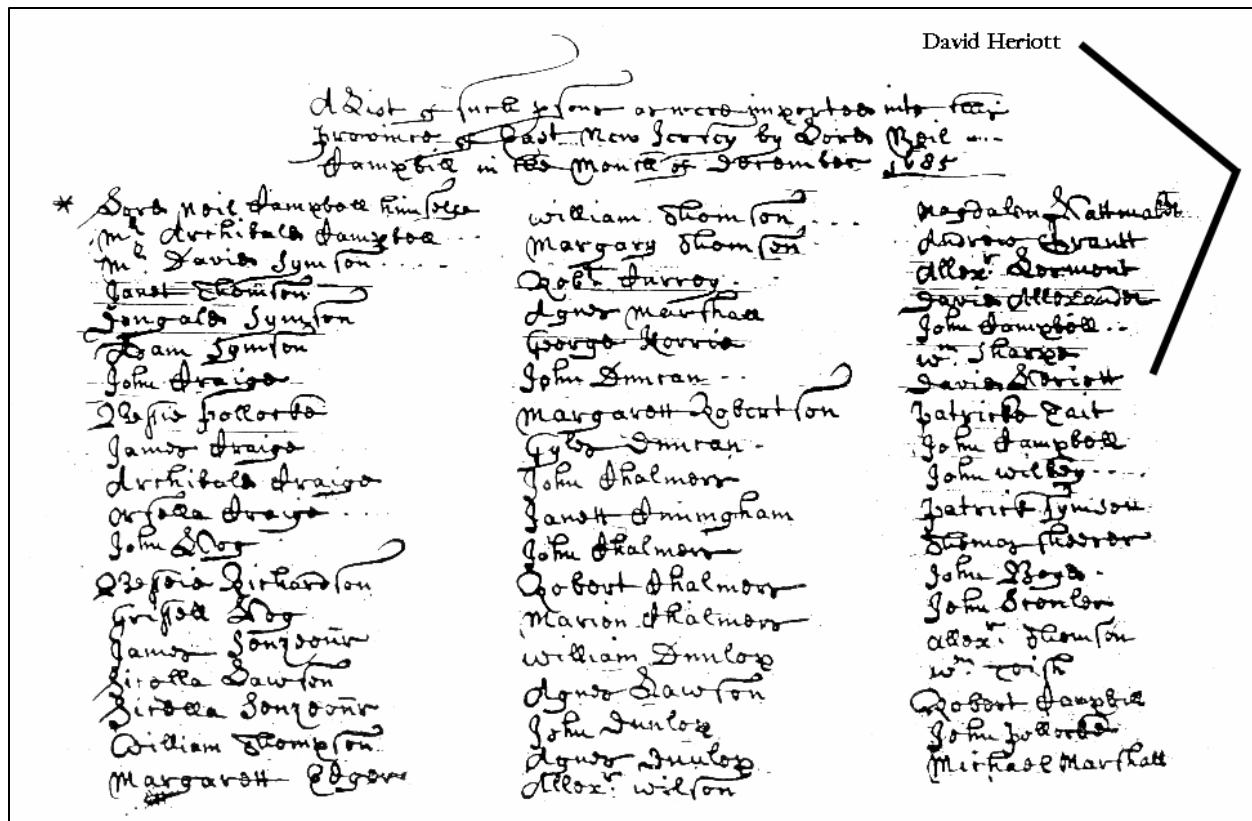 David Heriott
A List of such psons as were imported into this
province of East New Jersey by Lord Neil
Campbill in the Month of December 1685
* Lord Neil Campbell himselfe
Mr Archibald Campbell
Mr David Symson
Janet Thomson
Symson
Adam Symson
John Craige
Bessie Pollocke
James Craige
Archibald Craige
Craige
John
Bessie Richardson
Grissell
James
Lawson
William Thompson
Margarett Edger
William Thomson
Margary Thomson
Robt Currey
Agnes Marshall
George Korrie
John Duncan
Margarett Robertson
Gyles Duncan
John Chalmers
Janett Cuningham
John Chalmers
Robert Chalmers
Marion Chalmers
William Dunlop
Agnes Lawson
John Dunlop
Agnes Dunlop
Allexr Wilson
Magdalen
Andrew Grautt
Allexr
David Allexander
John Campbell
Wm Sharpe
David Heriott
Patricke Tait
John Campbell
John
Patrick Symson
Thomas Sheerer
John Boyd
John
Allexr Thomson
Wm Toish
Robert Campbill
John Pollocke
Michael Marshall